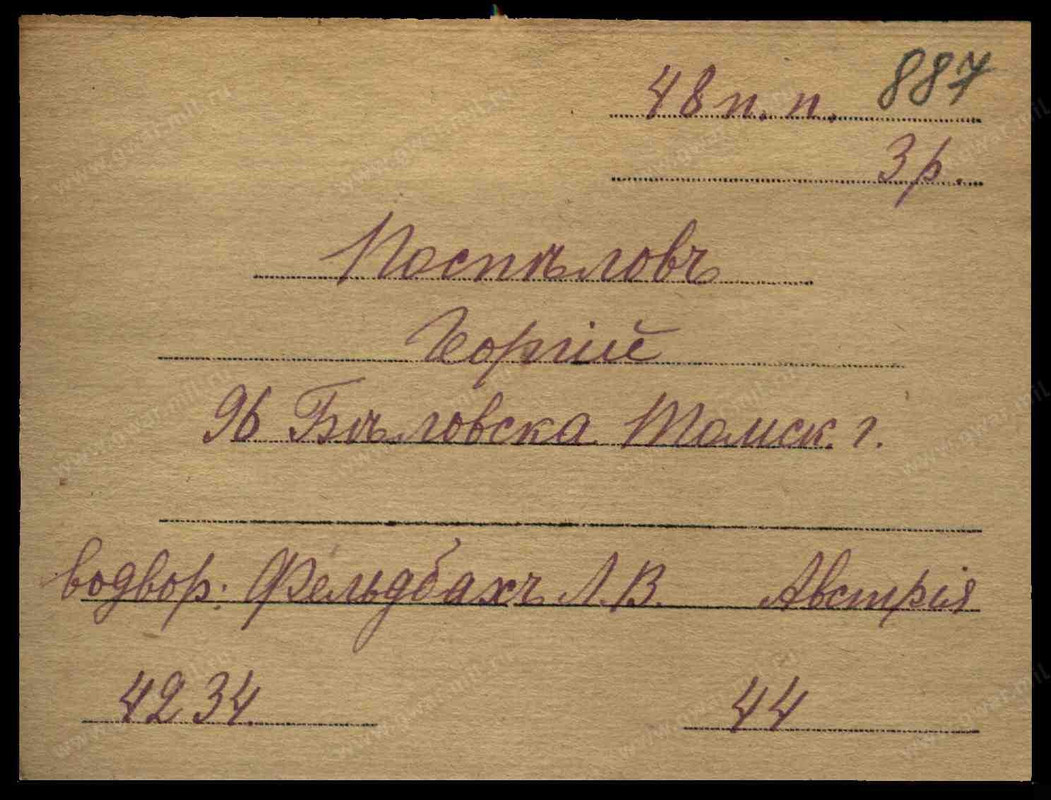 48 п. п. 887
3 р.
Поспѣловъ
Георгій
Бѣловска Томск. г.
водвор. Фельдбахъ Л. В. Австрія
4234.
44
www.gwar.mil.ru